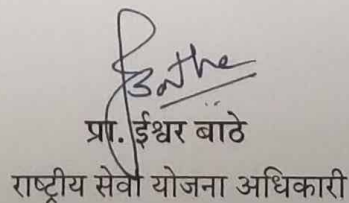 Bathe
प्रा. ईश्वर बाठे
राष्ट्रीय सेवा योजना अधिकारी